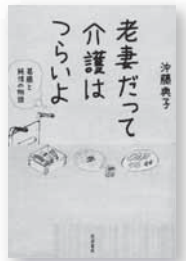 老妻だって
介護は
つらいよ
沖藤典子
葛藤と
純情の物語
岩波書店